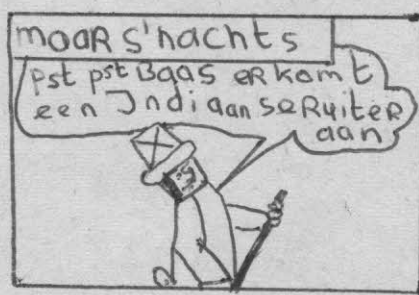 maar s'nachts
Pst pst Baas er komt
een Indiaanse Ruiter
aan